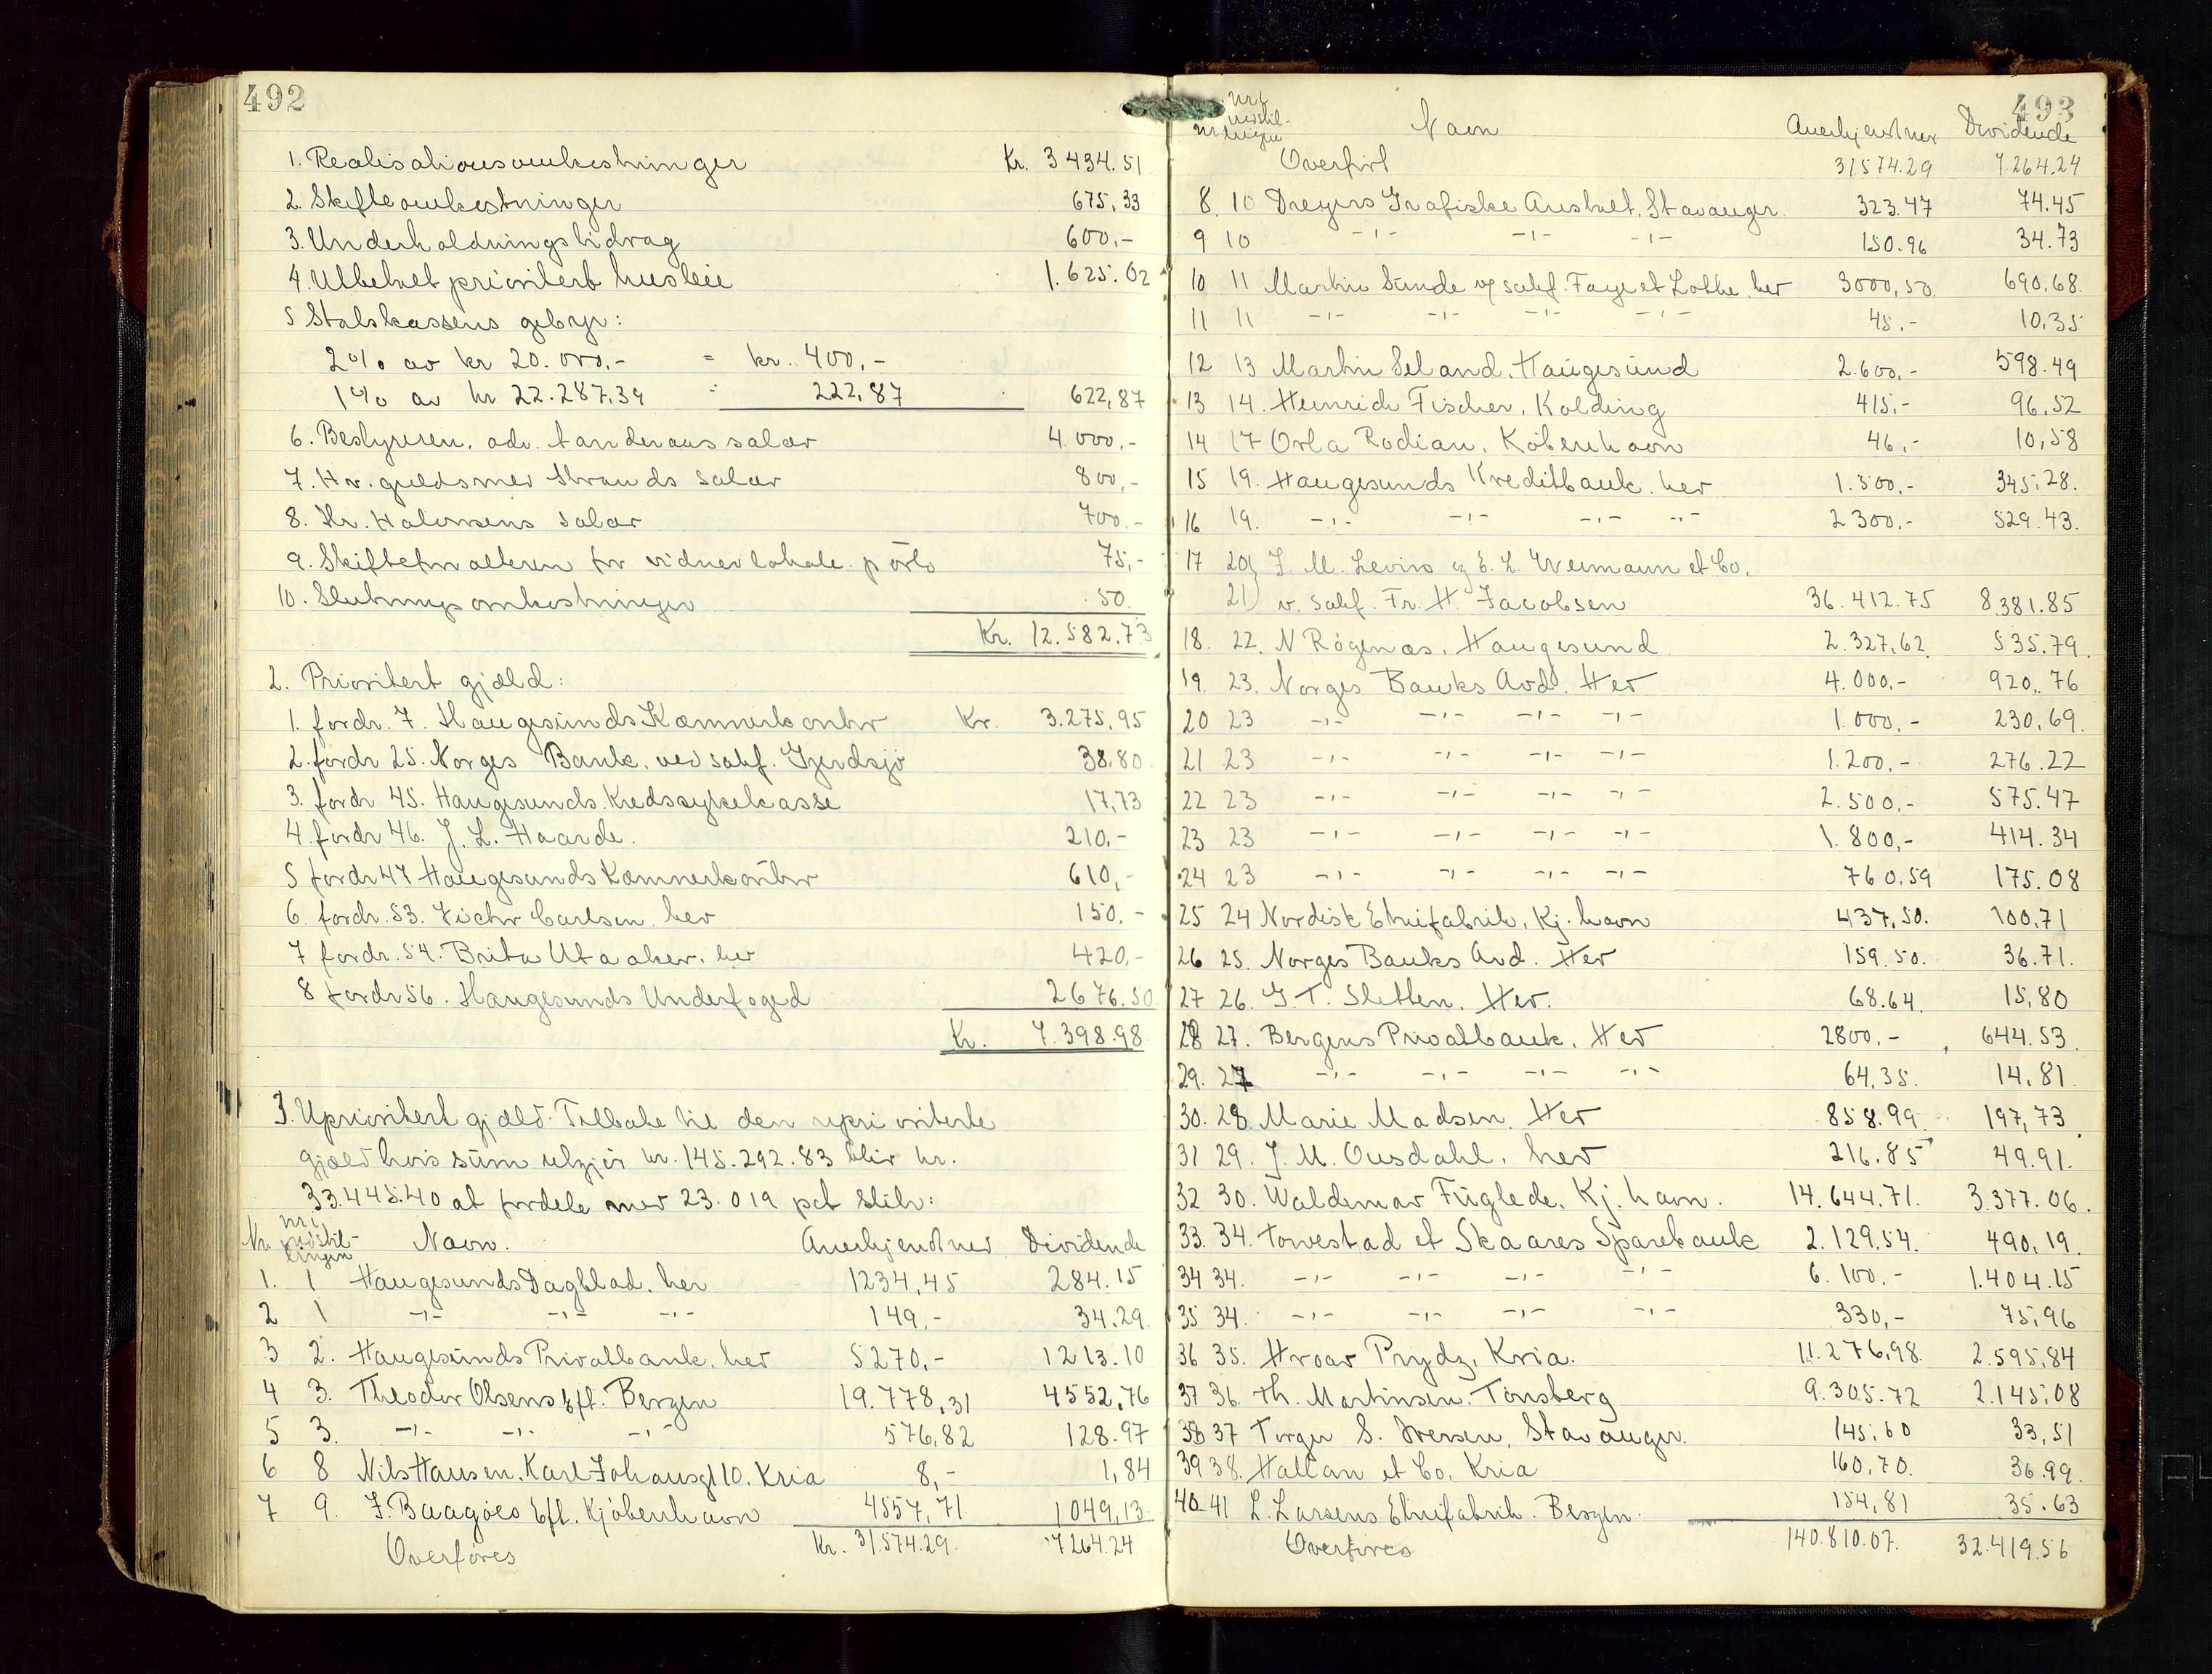 492
1. Realisationsomkostninger Kr. 3434.51
2. Skifteomkostninger 675,33
3. Underholdningsbidrag 600,-
4. Utbetalt prioritert husleie 1.625.02
5 Statskassens gebyr:
2% av kr 20.000,- = kr. 400,-
1% av kr 22.287,39 = 222,87 622,87
6. Bestyreren, adv. salær 4.000,-
7. Hr. guldsmed Strands salær 800,-
8. Hr. Halvorsens salær 700.-
9. Skifteforvalteren for vidner lokale porto 75,-
10. Slutningsomkostninger 50.
Kr. 12.582,73
2. Prioritert gjæld:
1. fordr. 7. Haugesunds Kæmnerkontor Kr. 3.275,95
2. fordr 25. Norges Bank, ved sakf. Gjerdsjø 38,80
3. fordr 45. Haugesunds Kredssykekasse 17,73
4. fordr 46. J. L. Haarde. 210,-
5 fordr 47 Haugesunds Kæmnerkontor 610,-
6. fordr. 53. Victor Carlsen, her 150.-
7 fordr. 54. Brita Utaaker, her 420,-
8 fordr 56. Haugesunds Underfoged 2676.50
Kr. 7.398.98
3. Uprioritert gjæld. Tilbake til den uprioriterte
gjæld hvis sum utgjør kr. 145.292.83 blir kr.
33.445.40 at fordele med 23.019 pct slik:
Nr. nr i indstillingen Navn. Anerkjendt med Dividende
1. 1 Haugesunds Dagblad, her 1234,45 284.15
2 1 -"- -"- -"- 149,- 34.29
3 2. Haugesunds Privatbank, her 5270,- 1213.10
4 3. Theodor Olsens Eft. Bergen 19.778,31 4552,76
5 3. -"- -"- -"- 576,82 128.97
6 8 Nils Hansen. Karl Johansgt 10. Kria 8,- 1,84
7 9. J. Baagøes Eft. Kjøbenhavn 4557,71 1049,13
Overføres Kr. 31.574.29. 7264.24
493
Nr nr i indstillingen Navn Anerkjendt med Dividende
Overført 31574.29 7.264.24
8. 10 Dreyers Grafiske Anstalt, Stavanger. 323.47 74.45
9 10 -"- -"- -"- 150.96 34.73
10 11 Martin Sunde v/ sakf. Faye et Lothe her 3000,50. 690,68.
11 11 -"- -"- -"- -"- 45,- 10,35
12 13 Martin Seland. Haugesund 2.600,- 598.49
13 14. Heinrich Fischer, Kolding 415,- 96,52
14 17 Orla Rodian, København 46,- 10,58
15 19. Haugesunds Kreditbank, her 1.500,- 345,28.
16 19. -"- -"- -"- -"- 2300,- 529.43.
17 20) J. M. Levin og E. L. Weimann et Co.
21) v. sakf. Fr. H. Jacobsen 36.412.75 8.381.85
18. 22. N Røgenæs. Haugesund 2.327,62. 535.79.
19. 23. Norges Banks Avd. Her 4.000,- 920,76
20 23 -"- -"- -"- -"- 1.000,- 230,69.
21 23 -"- -"- -"- -"- 1.200,- 276.22
22 23 -"- -"- -"- -"- 2.500,- 575.47
23 23 -"- -"- -"- -"- 1.800,- 414.34
24 23 -"- -"- -"- -"- 760.59 175.08
25 24 Nordisk Etuifabrik, Kj.havn 437,50. 100.71
26 25. Norges Banks Avd. Her 159.50. 36.71.
27 26. G. T. Sletten. Her. 68.64. 15,80
28 27. Bergens Privatbank. Her 2800,- 644.53.
29. 27 -"- -"- -"- -"- 64,35. 14,81.
30. 28 Marie Madsen. Her 858.99. 197,73.
31 29. J. M. Ousdahl. her 216.85 49.91.
32 30. Waldemar Fuglede, Kj.havn. 14.644.71. 3.377.06.
33. 34. Torvestad et Skaares Sparebank 2.129,54. 490,19.
34 34. -"- -"- -"- -"- 6.100.- 1.404.15
35 34. -"- -"- -"- -"- 330,- 75,96
36 35. Hroar Prydz, Kria. 11.276,98. 2.595,84
37 36. Th. Martinsen. Tønsberg 9.305.72 2.145,08
38 37 Torger S. Stavanger. 145,60 33,51
39 38. Hallan et Co, Kria 160,70. 36.99.
40 41 L. Larsens Etuifabrik. Bergen. 154,81 35.63
Overføres 140.810.07. 32.419.56